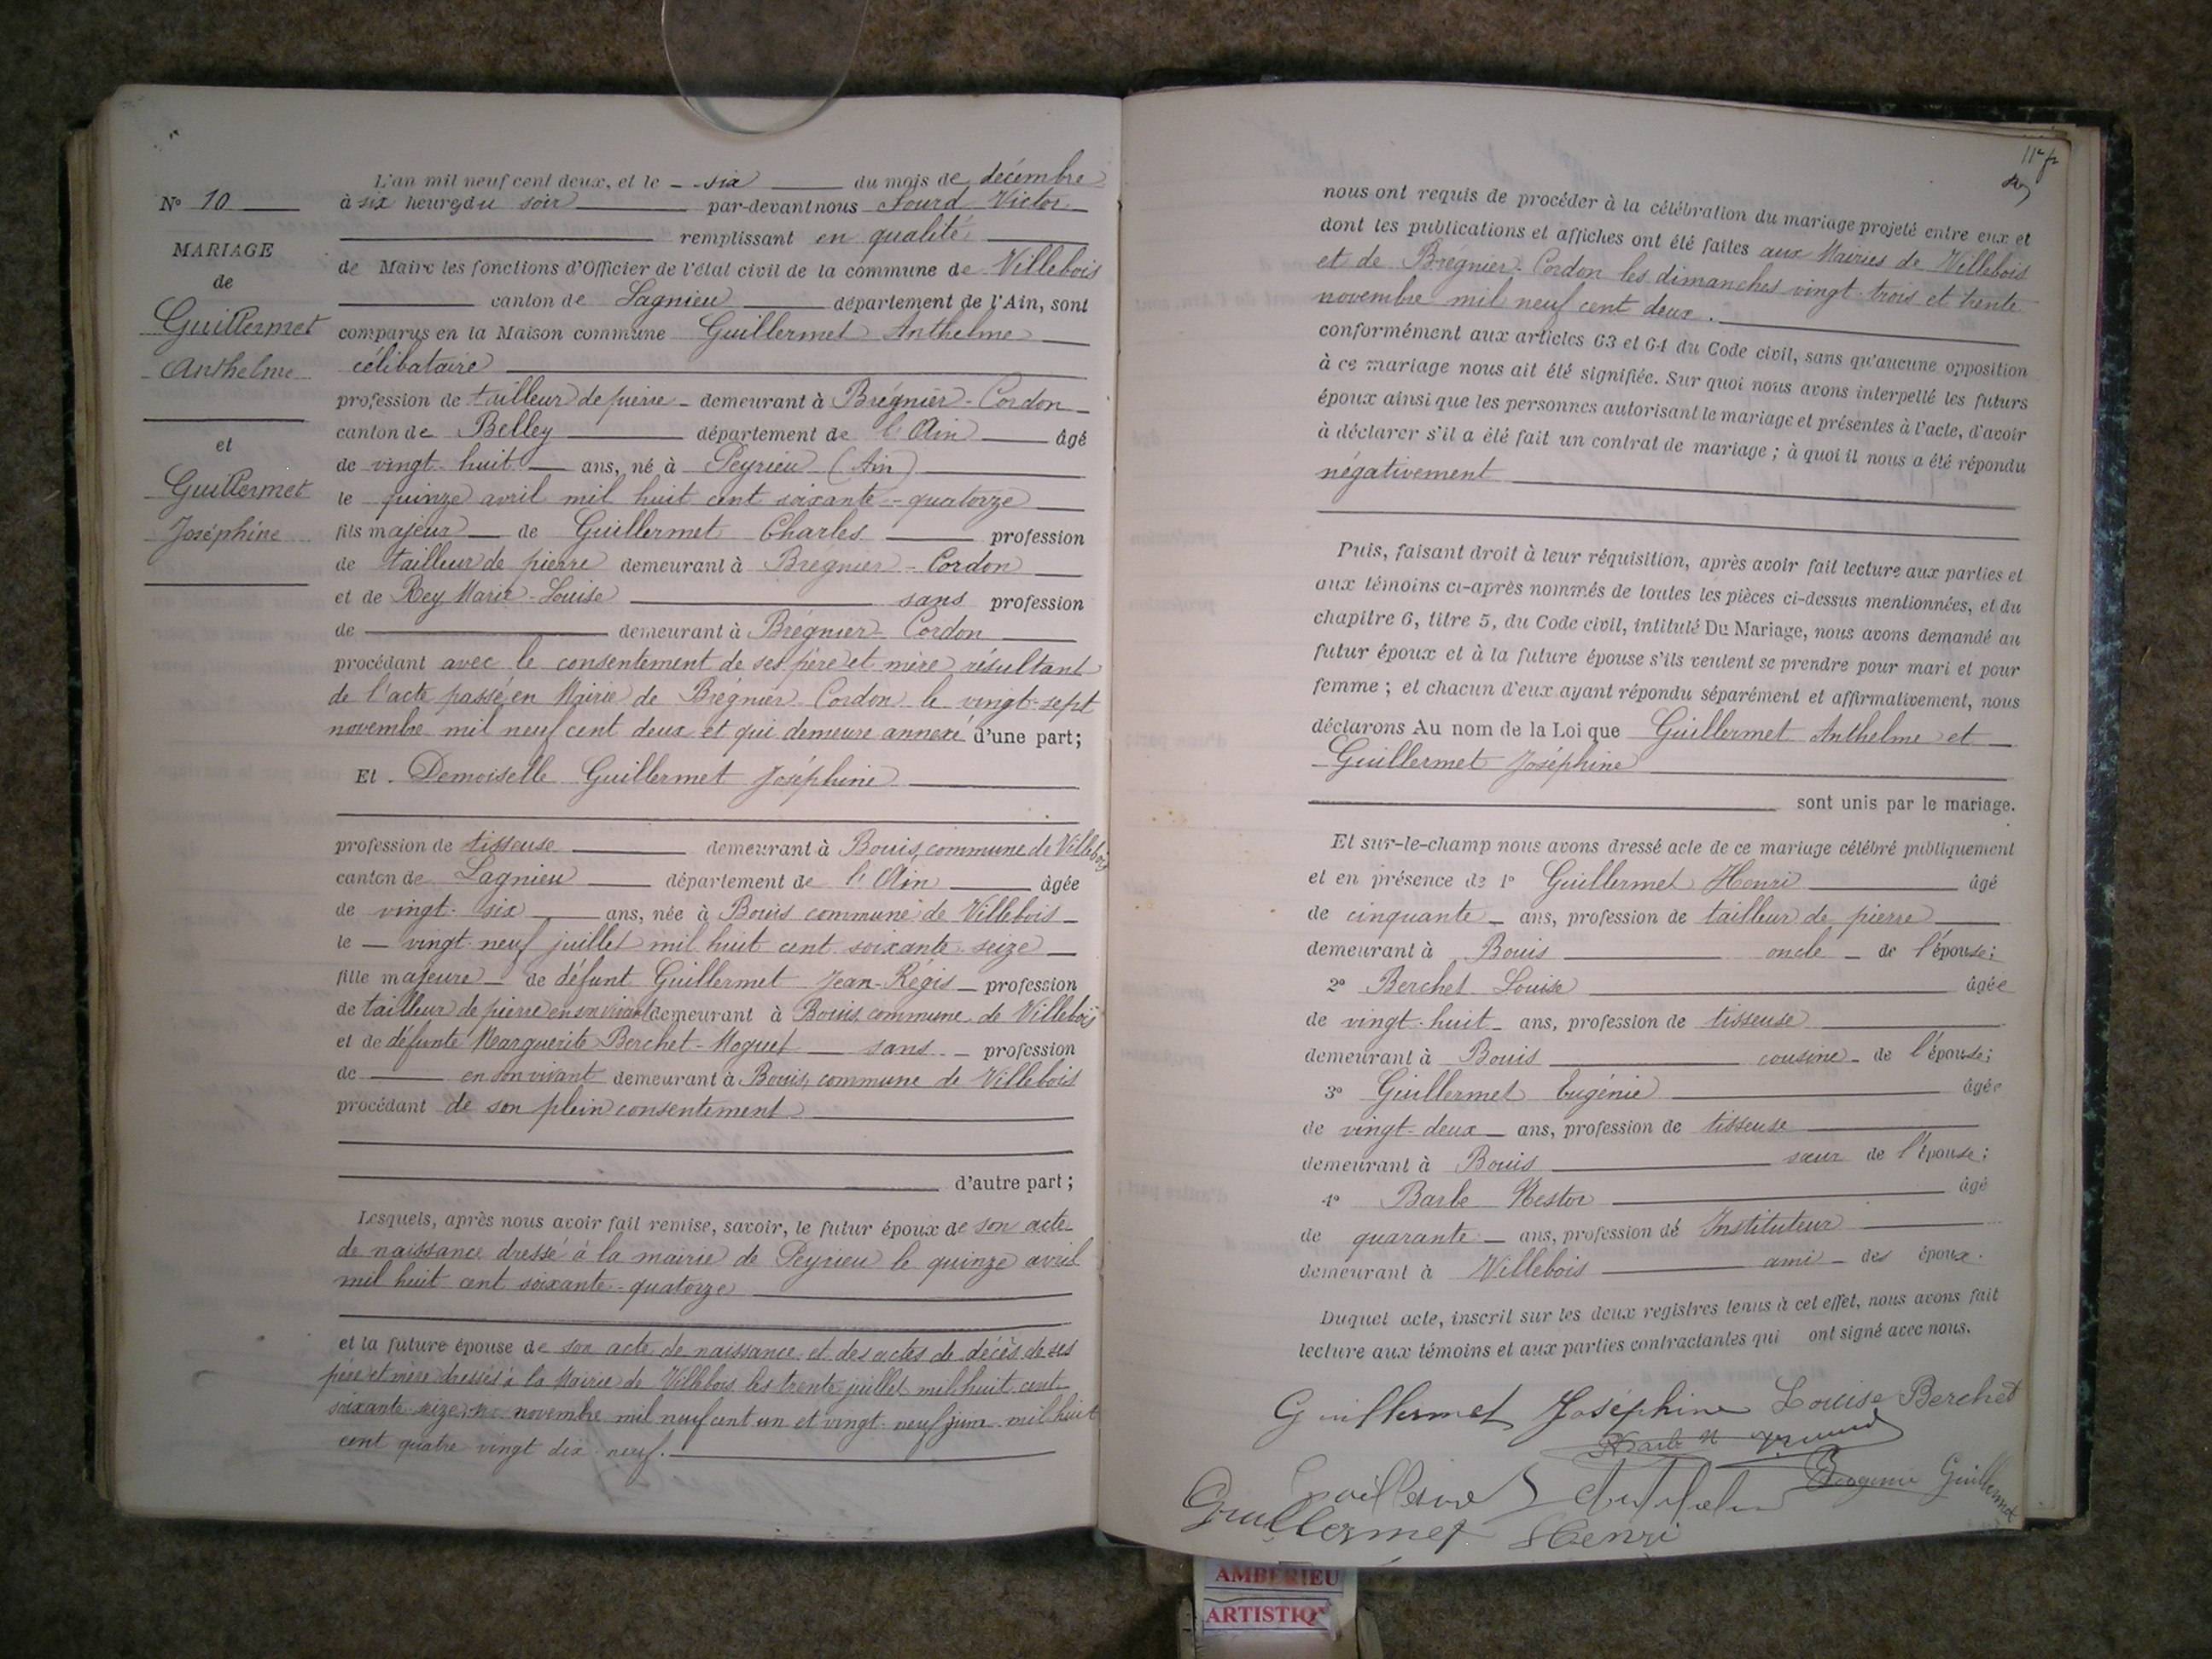 N° 10
MARIAGE
de
Guillermet
Anthelme
et
Guillermet
Joséphine
L'an mil neuf cent deux, et le six du mois de décembre
à six heures du soir par-devant nous Sourd Victor
remplissant en qualité
de Maire les fonctions d'Officier de l'état civil de la commune de Villebois
canton de Lagnieu département de l'Ain, sont
comparus en la Maison commune Guillermet Anthelme
célibataire
profession de tailleur de pierre demeurant à Brégnier-Cordon
canton de Belley département de l'Ain âgé
de vingt-huit ans, né à Peyrieu (Ain)
le quinze avril mil huit cent soixante-quatorze
fils majeur de Guillermet Charles profession
de tailleur de pierre demeurant à Brégnier-Cordon
et de Rey Marie-Louise sans profession
de demeurant à Brégnier-Cordon
procédant avec le consentement de ses père et mère résultant
de l'acte passé en Mairie de Brégnier-Cordon le vingt-sept
novembre mil neuf cent deux et qui demeure annexé d'une part;
Et Demoiselle Guillermet Joséphine
profession de tisseuse demeurant à Bouis, commune de Villebois
canton de Lagnieu département de l'Ain âgée
de vingt-six ans, née à Bouis commune de Villebois
le vingt-neuf juillet mil huit cent soixante-seize
fille majeure de défunt Guillermet Jean-Régis profession
de tailleur de pierre en son vivant demeurant à Bouis commune de Villebois
et de défunte Marguerite Berchet-Moguet sans profession
de en son vivant demeurant à Bouis, commune de Villebois
procédant de son plein consentement
d'autre part;
Lesquels, après nous avoir fait remise, savoir, le futur époux de son acte
de naissance dressé à la mairie de Peyrieu le quinze avril
mil huit cent soixante-quatorze
et la future épouse de son acte de naissance et des actes de décès de ses
père et mère dressés à la Mairie de Villebois les trente juillet mil huit cent
soixante-seize, novembre mil neuf cent un et vingt-neuf juin mil huit
cent quatre vingt dix-neuf.
nous ont requis de procéder à la célébration du mariage projeté entre eux et
dont les publications et affiches ont été faites aux Mairies de Villebois
et de Brégnier-Cordon les dimanches vingt-trois et trente
novembre mil neuf cent deux.
conformément aux articles 63 et 64 du Code civil, sans qu'aucune opposition
à ce mariage nous ait été signifiée. Sur quoi nous avons interpellé les futurs
époux ainsi que les personnes autorisant le mariage et présentes à l'acte, d'avoir
à déclarer s'il a été fait un contrat de mariage; à quoi il nous a été répondu
négativement
Puis, faisant droit à leur réquisition, après avoir fait lecture aux parties et
aux témoins ci-après nommés de toutes les pièces ci-dessus mentionnées, et du
chapitre 6, titre 5, du Code civil, intitulé Du Mariage, nous avons demandé au
futur époux et à la future épouse s'ils veulent se prendre pour mari et pour
femme; et chacun d'eux ayant répondu séparément et affirmativement, nous
déclarons Au nom de la Loi que Guillermet Anthelme et
Guillermet Joséphine
sont unis par le mariage.
Et sur-le-champ nous avons dressé acte de ce mariage célébré publiquement
et en présence de 1° Guillermet Henri âgé
de cinquante ans, profession de tailleur de pierre
demeurant à Bouis oncle de l'épouse;
2° Berchet Louise âgée
de vingt-huit ans, profession de tisseuse
demeurant à Bouis cousine de l'épouse;
3° Guillermet Eugénie âgée
de vingt-deux ans, profession de tisseuse
demeurant à Bouis sœur de l'épouse;
4° Barbe Nestor âgé
de quarante ans, profession de Instituteur
demeurant à Villebois ami des époux.
Duquel acte, inscrit sur les deux registres tenus à cet effet, nous avons fait
lecture aux témoins et aux parties contractantes qui ont signé avec nous.
Guillermet Joséphine Louise Berchet
Barbe N
Eugenie Guillermet
Guillermet Henri
AMBERIEU
ARTISTIQ